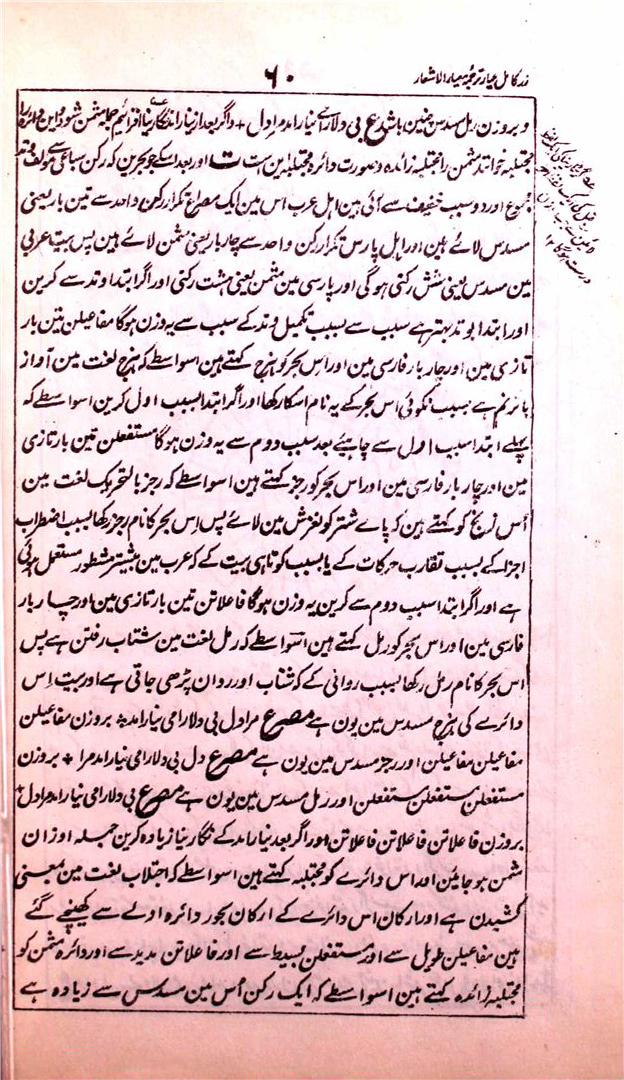 ۶۰ زر کامل عیار ترجمہ معیار الاشعار
و بروزن رمل مسدس چنین باشد ع بی دلارامی نیارامد مرا دل + و اگر بعد از نیارامد نگارینا افزائیم جملہ مثمن شود و این دائرہ را
مجتلبہ خوانند مثمن را مجتلبہ زائدہ و صورت دائرہ مجتلبہ این است ت اور بعد اسکے جو بحرین کہ رکن سباعی سے مولف وتد
مجموع اور دو سبب خفیف سے آئی ہین اہل عرب اس مین ایک مصراع تکرار رکن واحد سے تین بار یعنی
مسدس لائے ہین اور اہل پارس تکرار رکن واحد سے چار بار یعنی مثمن لائے ہین پس بیت عربی
مین مسدس یعنی شش رکنی ہوگی اور پارسی مین مثمن یعنی ہشت رکنی اور اگر ابتدا وتد سے کرین
اور ابتدا بوتد بہتر ہے سبب سے بسبب تکمیل وتد کے سبب سے یہ وزن ہوگا مفاعیلن تین بار
تازی مین اور چار بار فارسی مین اور اس بحر کو ہزج کہتے ہین اسواسطے کہ ہزج لغت مین آواز
باترنم ہے بسبب نکوئی اس بحر کے یہ نام اسکا رکھا اور اگر ابتدا بسبب اول کرین اسواسطے کہ
پہلے ابتدا سبب اول سے چاہیئے بعد سبب دوم سے یہ وزن ہوگا مستفعلن تین بار تازی
مین اور چار بار فارسی مین اور اس بحر کو رجز کہتے ہین اسواسطے کہ رجز بالتحریک لغت مین
اُس رنج کو کہتے ہین کہ پاے شتر کو لغزش مین لائے پس اس بحر کا نام رجز رکھا بسبب اضطراب
اجزا کے بسبب تقارب حرکات کے یا بسبب کوتاہی بیت کے کہ عرب مین بیشتر مشطور مستعمل ہوتی
ہے اور اگر ابتدا سبب دوم سے کرین یہ وزن ہوگا فاعلاتن تین بار تازی مین اور چار بار
فارسی مین اور اس بحر کو رمل کہتے ہین اسواسطے کہ رمل لغت مین شتاب رفتن ہے پس
اس بحر کا نام رمل رکھا بسبب روانی کے کہ شتاب اور روان پڑھی جاتی ہے اور بیت اس
دائرے کی ہزج مسدس مین یون ہے مصرع مرا دل بی دلارامی نیارامد + بروزن مفاعیلن
مفاعیلن مفاعیلن اور رجز مسدس مین یون ہے مصرع دل بی دلارامی نیارامد مرا + بروزن
مستفعلن مستفعلن مستفعلن اور رمل مسدس مین یون ہے مصرع بی دلارامی نیارامد مرا دل +
بروزن فاعلاتن فاعلاتن فاعلاتن اور اگر بعد نیارامد کے نگارینا زیادہ کرین جملہ اوزان
مثمن ہو جائین اور اس دائرے کو مجتلبہ کہتے ہین اسواسطے کہ اجتلاب لغت مین بمعنی
کشیدن ہے اور ارکان اس دائرے کے ارکان بحور دائرہ اولے سے کھینچے گئے
ہین مفاعیلن طویل سے اور مستفعلن بسیط سے اور فاعلاتن مدید سے اور دائرہ مثمن کو
مجتلبہ زائدہ کہتے ہین اسواسطے کہ ایک رکن اُس مین مسدس سے زیادہ ہے
درست ہوگا ۱۲